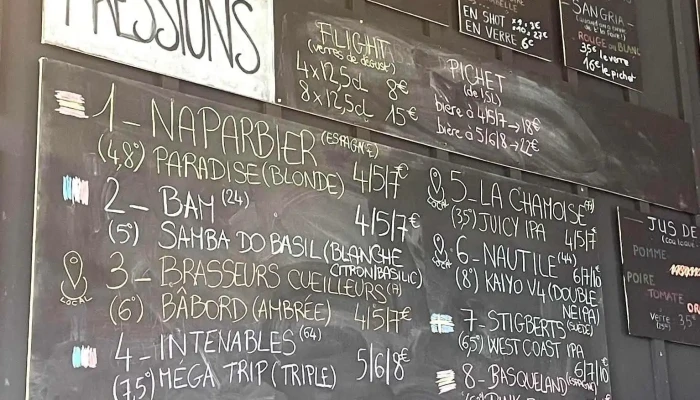 PRESSIONS
FLIGHT
(verres de dégust°)
4x12,5cl 8€
8x12,5cl 15€
PICHET
(de 1,5L)
bière à 4/5/7 → 18€
bière à 5/6/8 → 22€
EN SHOT
EN VERRE 6€
SANGRIA
ROUGE ou BLANC
35€ le verre
16€ le pichet
1_ NAPARBIER (ESPAGNE)
(4,8°) PARADISE (BLONDE) 4/5/7€
2_ BAM (24)
(5°) SAMBA DO BASIL (BLANCHE CITRON/BASILIC) 4/5/7€
LOCAL
3_ BRASSEURS CUEILLEURS
(6°) BÂBORD (AMBRÉE) 4/5/7€
4_ INTENABLES (64)
(7,5°) MEGA TRIP (TRIPLE) 5/6/8€
LOCAL
5_ LA CHAMOISE
(3,5°) JUICY IPA 4/5/7€
LOCAL
6_ NAUTILE (44)
(8°) KAIYO V4 (DOUBLE NEIPA) 6/7/10€
7_ STIGBERTS (SUEDE)
(6,5°) WEST COAST IPA 6/7/10€
8_ BASQUELAND (ESPAGNE)
JUS DE
POMME
POIRE
TOMATE
verre 3,5€